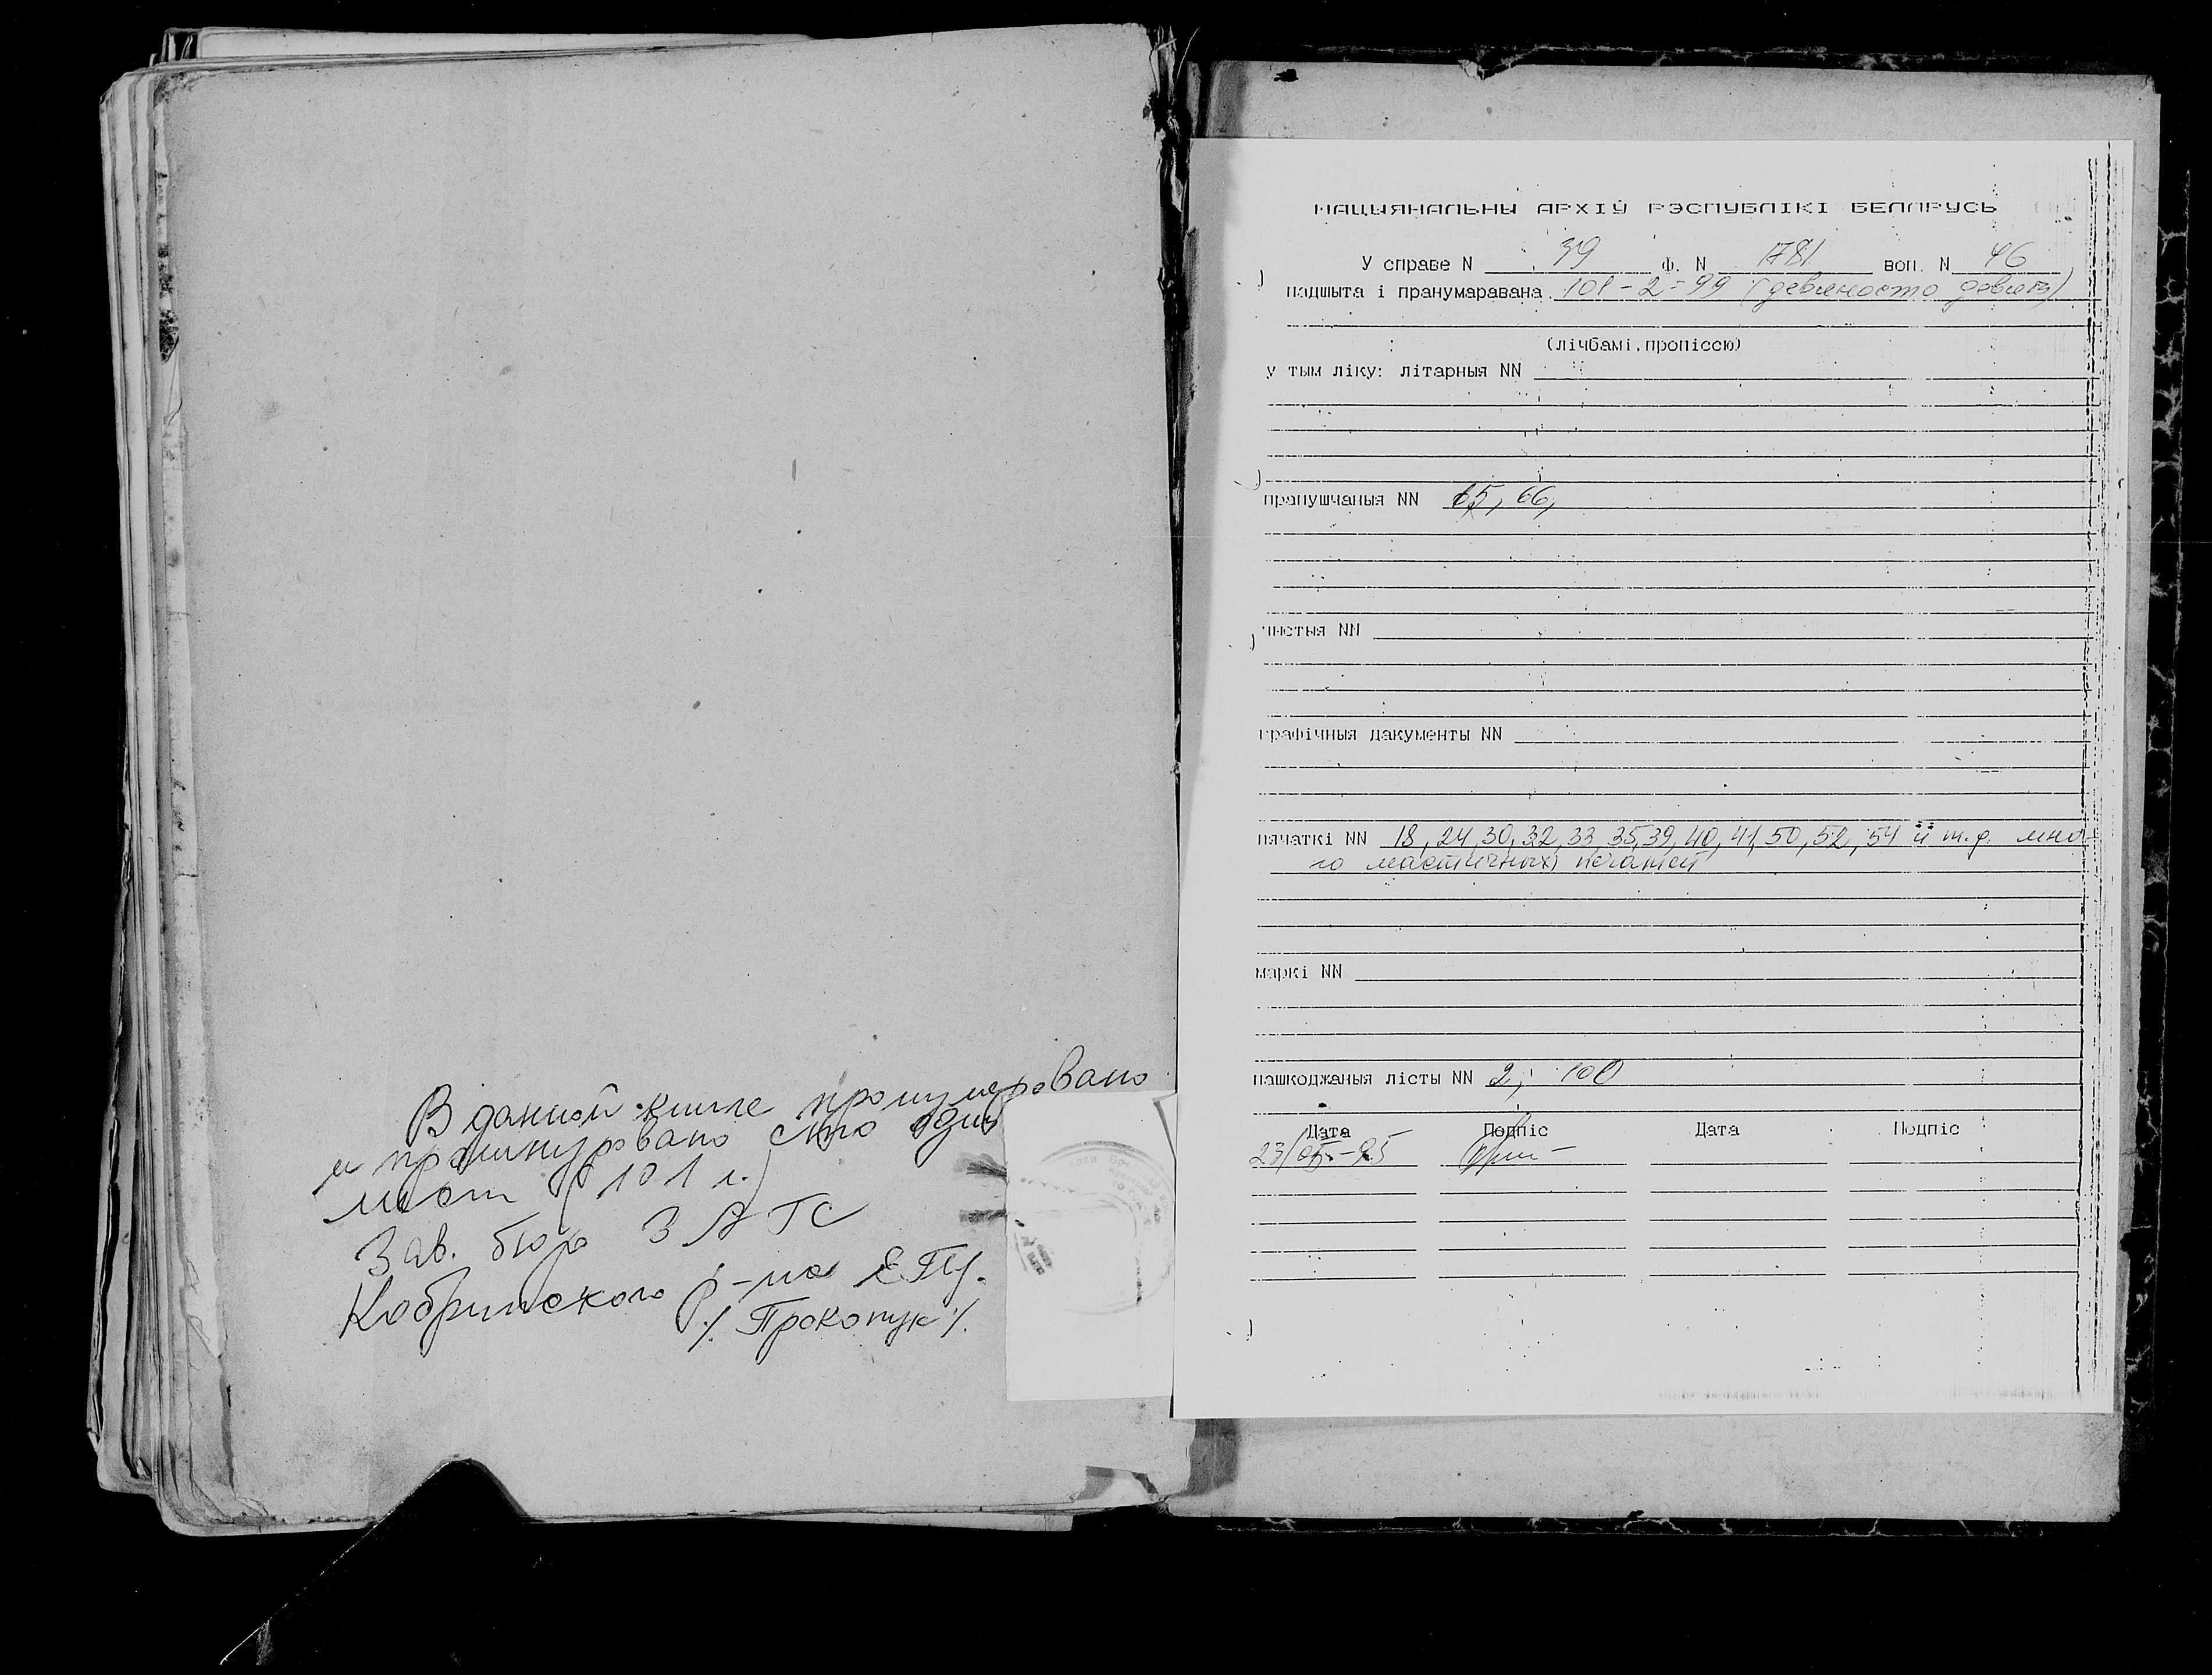 В данной книге пронумеровано
и прошнуровано сто один
лист (101 л.)
Зав. бюро ЗАГС
Кобринского р-на
/Прокопук/.
НАЦЫЯНАЛЬНЫ АРХІЎ РЭСПУБЛІКІ БЕЛАРУСЬ
У справе N 39 Ф. N 1781 воп. N 46
падшыта і пранумаравана 101-2=99 (девяносто девять)
(лічбамі, пропіссю)
у тым ліку: літарныя NN
прапушчаныя NN 65, 66,
чыстыя NN
графічныя дакументы NN
пячаткі NN 18, 24, 30, 32, 33, 35, 39, 40, 41, 50, 52, 54 и т.д. мно-
го мастичных печатей
маркі NN
пашкоджаныя лісты NN 2, 100
Дата Подпіс Дата Подпіс
23/05-95